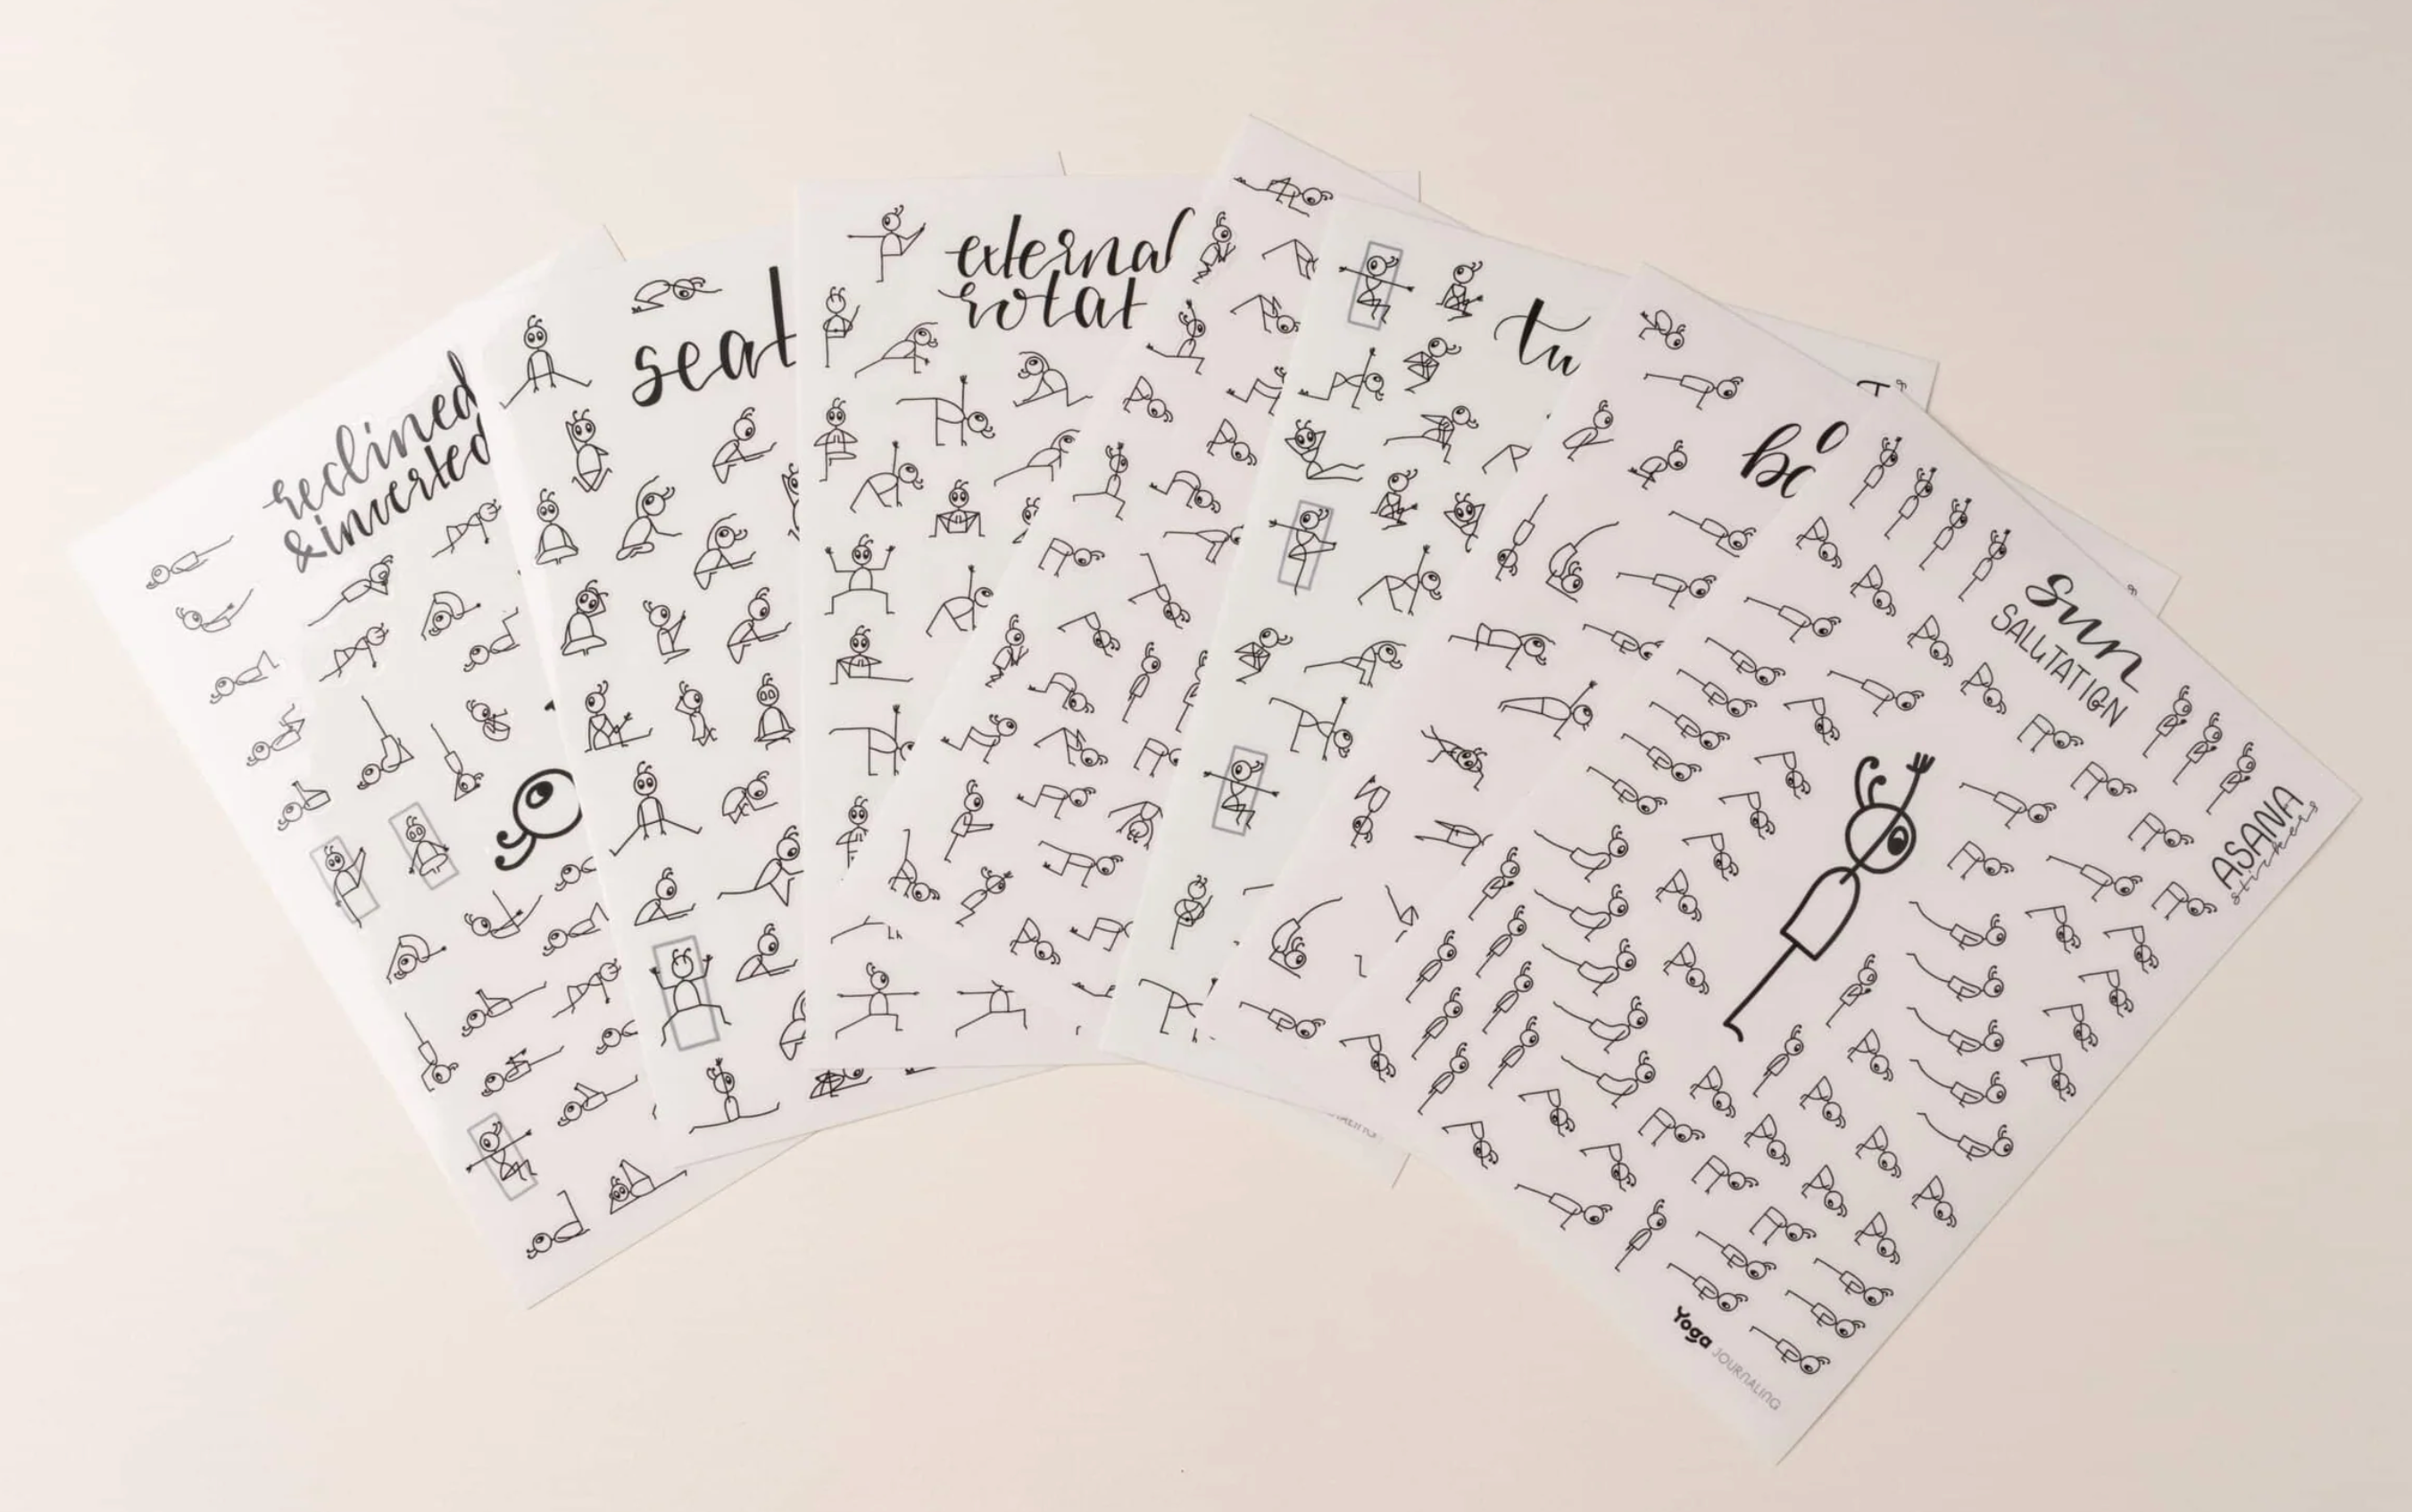 reclined
& inverted
seat
external
rotat
tw
sun
SALUTATION
ASANA
stickers
Yoga JOURNALING